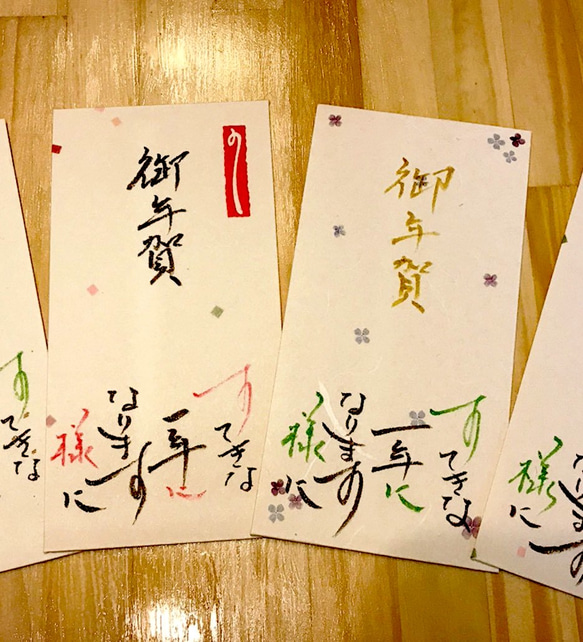 すてきな
御年賀
のし
すてきな
一年に
なります
様に
御年賀
すてきな
一年に
なります
様に
なります
様に